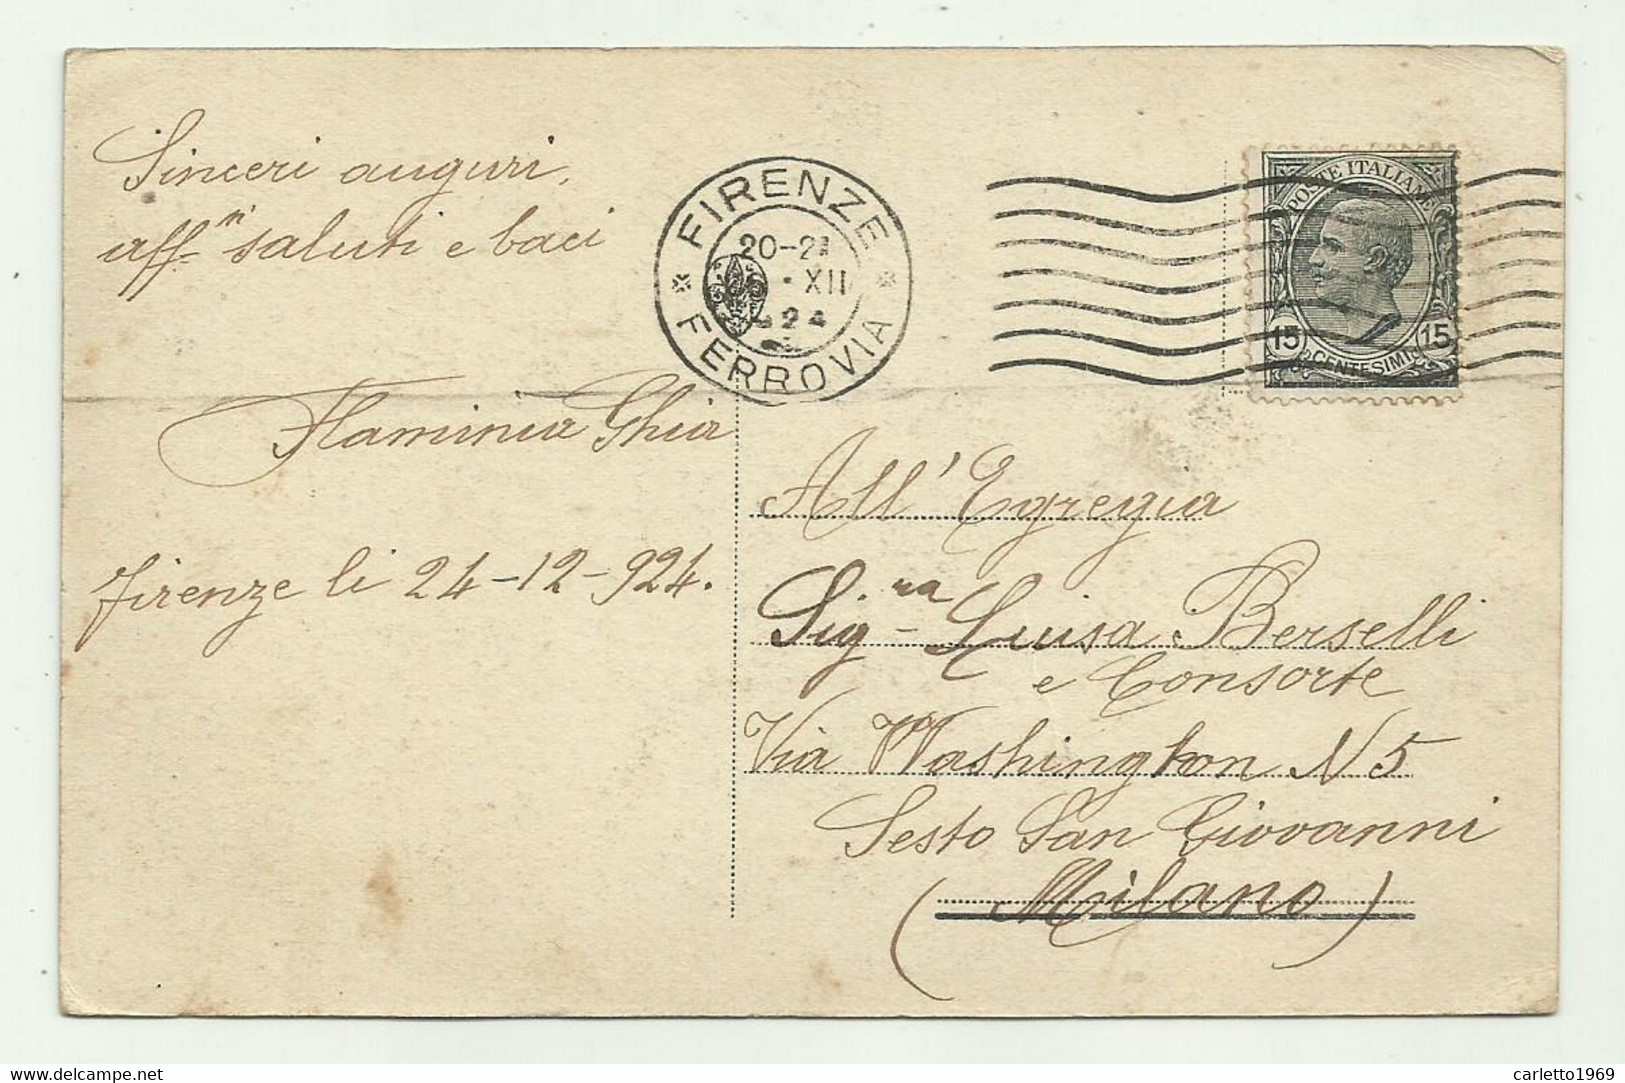 Sinceri auguri,
aff.ni saluti e baci
Flaminia Ghia
firenze li 24-12-924.
FIRENZE
20-21
XII
24
FERROVIA
POSTE ITALIANE
15 15
CENTESIMI
All' Egregia
Sig.ra Luisa Berselli
e Consorte
Via Washington N 5
Sesto San Giovanni
(Milano)
delcampe.net
carletto1969